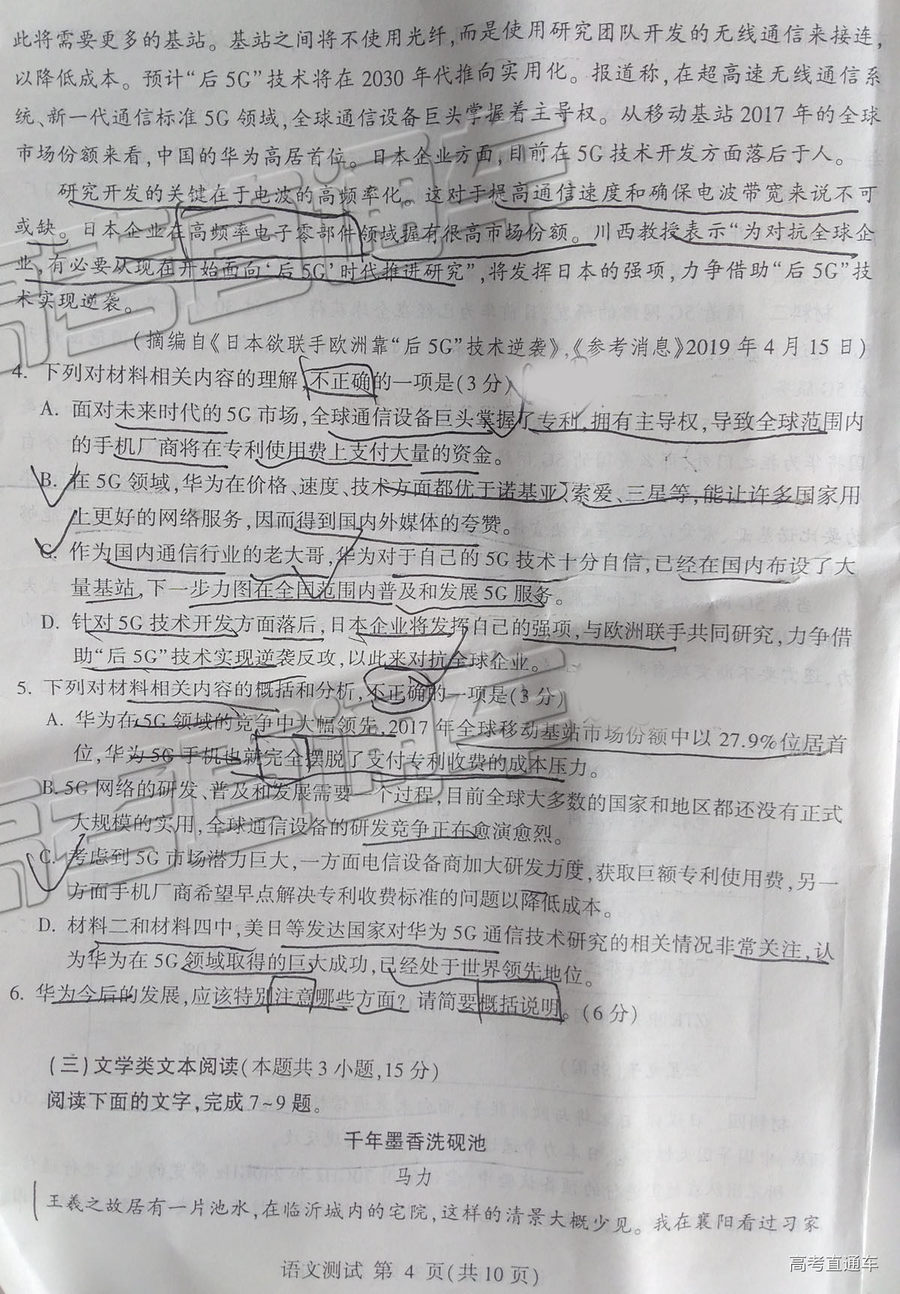 此将需要更多的基站。基站之间将不使用光纤,而是使用研究团队开发的无线通信来接连,
以降低成本。预计“后5G”技术将在2030年代推向实用化。报道称,在超高速无线通信系
统、新一代通信标准5G领域,全球通信设备巨头掌握着主导权。从移动基站2017年的全球
市场份额来看,中国的华为高居首位。日本企业方面,目前在5G技术开发方面落后于人。
研究开发的关键在于电波的高频率化。这对于提高通信速度和确保电波带宽来说不可
或缺。日本企业在高频率电子零部件领域握有很高市场份额。川西教授表示“为对抗全球企
业,有必要从现在开始面向‘后5G’时代推进研究”,将发挥日本的强项,力争借助“后5G”技
术实现逆袭。
(摘编自《日本欲联手欧洲靠“后5G”技术逆袭》,《参考消息》2019年4月15日)
4. 下列对材料相关内容的理解,不正确的一项是(3分)
A. 面对未来时代的5G市场,全球通信设备巨头掌握了专利,拥有主导权,导致全球范围内
的手机厂商将在专利使用费上支付大量的资金。
B. 在5G领域,华为在价格、速度、技术方面都优于诺基亚、索爱、三星等,能让许多国家用
上更好的网络服务,因而得到国内外媒体的夸赞。
C. 作为国内通信行业的老大哥,华为对于自己的5G技术十分自信,已经在国内布设了大
量基站,下一步力图在全国范围内普及和发展5G服务。
D. 针对5G技术开发方面落后,日本企业将发挥自己的强项,与欧洲联手共同研究,力争借
助“后5G”技术实现逆袭反攻,以此来对抗全球企业。
5. 下列对材料相关内容的概括和分析,不正确的一项是(3分)
A. 华为在5G领域的竞争中大幅领先,2017年全球移动基站市场份额中以27.9%位居首
位,华为5G手机也就完全摆脱了支付专利收费的成本压力。
B. 5G网络的研发、普及和发展需要一个过程,目前全球大多数的国家和地区都还没有正式
大规模的实用,全球通信设备的研发竞争正在愈演愈烈。
C. 考虑到5G市场潜力巨大,一方面电信设备商加大研发力度,获取巨额专利使用费,另一
方面手机厂商希望早点解决专利收费标准的问题以降低成本。
D. 材料二和材料四中,美日等发达国家对华为5G通信技术研究的相关情况非常关注,认
为华为在5G领域取得的巨大成功,已经处于世界领先地位。
6. 华为今后的发展,应该特别注意哪些方面?请简要概括说明。(6分)
(三)文学类文本阅读(本题共3小题,15分)
阅读下面的文字,完成7~9题。
千年墨香洗砚池
马力
王羲之故居有一片池水,在临沂城内的宅院,这样的清景大概少见。我在襄阳看过习家
语文测试 第4页(共10页)
高考直通车